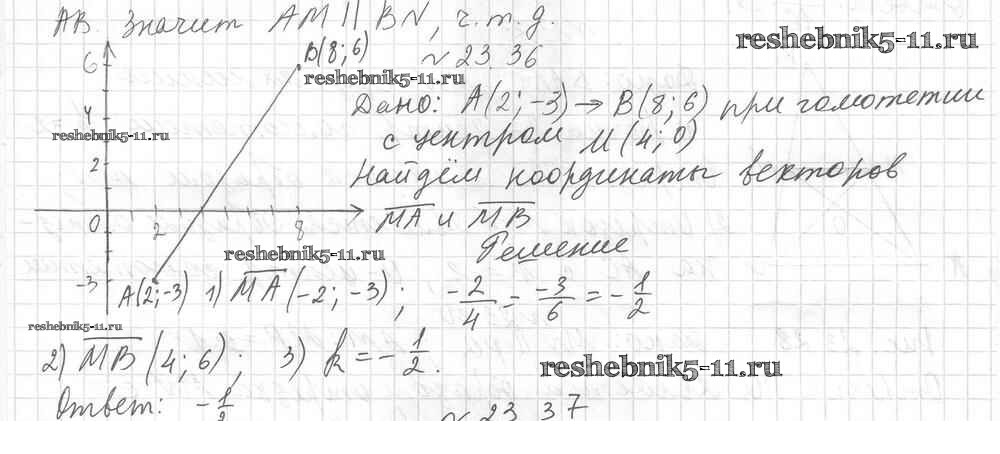 AB. Значит AM || BN, ч.т.д.
reshebnik5-11.ru
6 B(8; 6) №23.36
reshebnik5-11.ru
Дано: A(2; -3) → B(8; 6) при гомотетии
4
reshebnik5-11.ru
с центром M(4; 0)
2
Найдём координаты векторов
0 2 8
MA и MB
Решение
reshebnik5-11.ru
-3
A(2; -3) 1) MA(-2; -3); -2/4 = -3/6 = -1/2
reshebnik5-11.ru
2) MB(4; 6); 3) k = -1/2.
reshebnik5-11.ru
Ответ: -1/2
№23.37